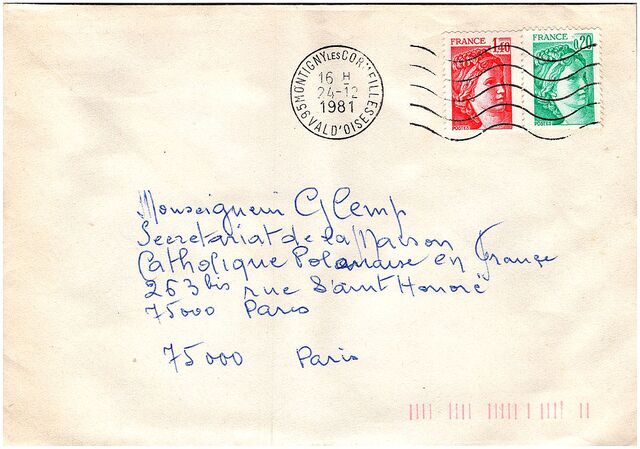 FRANCE 1,40
FRANCE 0,20
POSTES
POSTES
95 MONTIGNY LES CORMEILLES
16 H
24-12
1981
VAL D'OISE
Monseigneur Glemp
Secretariat de la Maison
Catholique Polonaise en France
263 bis rue Saint Honoré
75000 Paris
75000 Paris